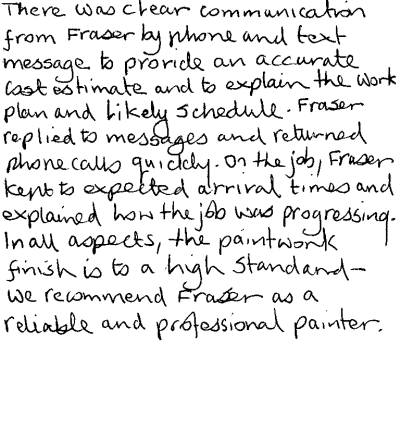 There was clear communication
from Fraser by phone and text
message to provide an accurate
cost estimate and to explain the work
plan and likely schedule. Fraser
replied to messages and returned
phone calls quickly. On the job, Fraser
kept to expected arrival times and
explained how the job was progressing.
In all aspects, the paintwork
finish is to a high standard -
we recommend Fraser as a
reliable and professional painter.